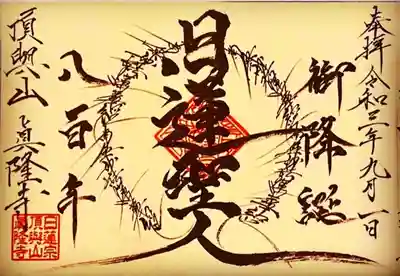 奉拝 令和三年九月一日
御降誕
日蓮聖人
八百年
頂與山 眞隆寺
日蓮宗
頂與山
眞隆寺